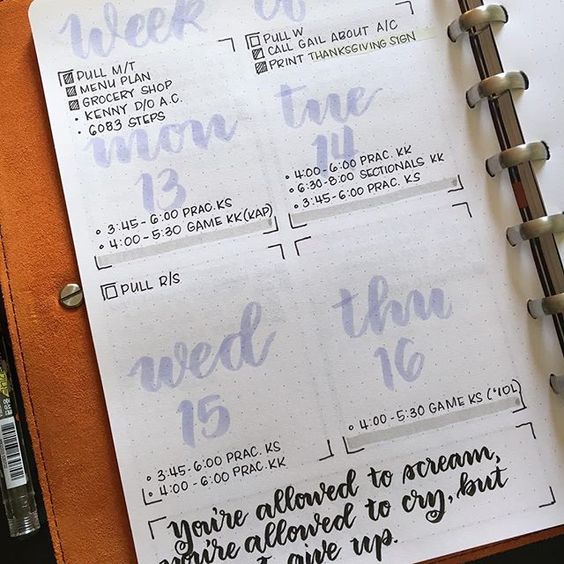 Week of
PULL M/T
MENU PLAN
GROCERY SHOP
• KENNY D/O A.C.
• 6083 STEPS
mon
13
• 3:45-6:00 PRAC. KS
• 4:00-5:30 GAME KK (KAP)
PULL W
CALL GAIL ABOUT A/C
PRINT THANKSGIVING SIGN
tue
14
• 4:00-6:00 PRAC. KK
• 6:30-8:00 SECTIONALS KK
• 3:45-6:00 PRAC. KS
PULL R/S
wed
15
• 3:45-6:00 PRAC. KS
• 4:00-6:00 PRAC. KK
thu
16
• 4:00-5:30 GAME KS
You're allowed to scream,
you're allowed to cry, but
give up.